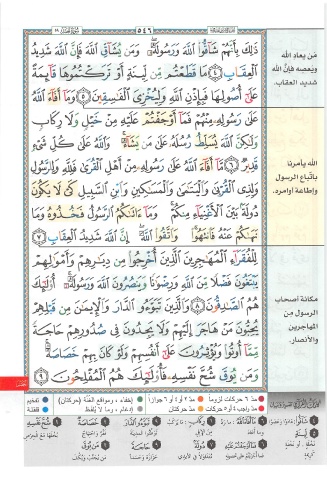 ٥٤٦
ذَٰلِكَ بِأَنَّهُمْ شَاقُّوا۟ ٱللَّهَ وَرَسُولَهُۥ وَمَن يُشَآقِّ ٱللَّهَ فَإِنَّ ٱللَّهَ شَدِيدُ
ٱلْعِقَابِ ٤ مَا قَطَعْتُم مِّن لِّينَةٍ أَوْ تَرَكْتُمُوهَا قَآئِمَةً
عَلَىٰٓ أُصُولِهَا فَبِإِذْنِ ٱللَّهِ وَلِيُخْزِىَ ٱلْفَٰسِقِينَ ٥ وَمَآ أَفَآءَ ٱللَّهُ
عَلَىٰ رَسُولِهِۦ مِنْهُمْ فَمَآ أَوْجَفْتُمْ عَلَيْهِ مِنْ خَيْلٍ وَلَا رِكَابٍ
وَلَٰكِنَّ ٱللَّهَ يُسَلِّطُ رُسُلَهُۥ عَلَىٰ مَن يَشَآءُ وَٱللَّهُ عَلَىٰ كُلِّ شَىْءٍ
قَدِيرٌ ٦ مَّآ أَفَآءَ ٱللَّهُ عَلَىٰ رَسُولِهِۦ مِنْ أَهْلِ ٱلْقُرَىٰ فَلِلَّهِ وَلِلرَّسُولِ
وَلِذِى ٱلْقُرْبَىٰ وَٱلْيَتَٰمَىٰ وَٱلْمَسَٰكِينِ وَٱبْنِ ٱلسَّبِيلِ كَىْ لَا يَكُونَ
دُولَةًۢ بَيْنَ ٱلْأَغْنِيَآءِ مِنكُمْ وَمَآ ءَاتَىٰكُمُ ٱلرَّسُولُ فَخُذُوهُ وَمَا
نَهَىٰكُمْ عَنْهُ فَٱنتَهُوا۟ وَٱتَّقُوا۟ ٱللَّهَ إِنَّ ٱللَّهَ شَدِيدُ ٱلْعِقَابِ ٧
لِلْفُقَرَآءِ ٱلْمُهَٰجِرِينَ ٱلَّذِينَ أُخْرِجُوا۟ مِن دِيَٰرِهِمْ وَأَمْوَٰلِهِمْ
يَبْتَغُونَ فَضْلًا مِّنَ ٱللَّهِ وَرِضْوَٰنًا وَيَنصُرُونَ ٱللَّهَ وَرَسُولَهُۥٓ أُو۟لَٰٓئِكَ
هُمُ ٱلصَّٰدِقُونَ ٨ وَٱلَّذِينَ تَبَوَّءُو ٱلدَّارَ وَٱلْإِيمَٰنَ مِن قَبْلِهِمْ
يُحِبُّونَ مَنْ هَاجَرَ إِلَيْهِمْ وَلَا يَجِدُونَ فِى صُدُورِهِمْ حَاجَةً
مِّمَّآ أُوتُوا۟ وَيُؤْثِرُونَ عَلَىٰٓ أَنفُسِهِمْ وَلَوْ كَانَ بِهِمْ خَصَاصَةٌ
وَمَن يُوقَ شُحَّ نَفْسِهِۦ فَأُو۟لَٰٓئِكَ هُمُ ٱلْمُفْلِحُونَ ٩
مَن يعادِ الله
ويعصِه فإنَّ الله
شديد العقاب.
الله يأمرنا
باتّباع الرسول
وإطاعة أوامره.
مكانة أصحاب
الرسول من
المهاجرين
والأنصار.